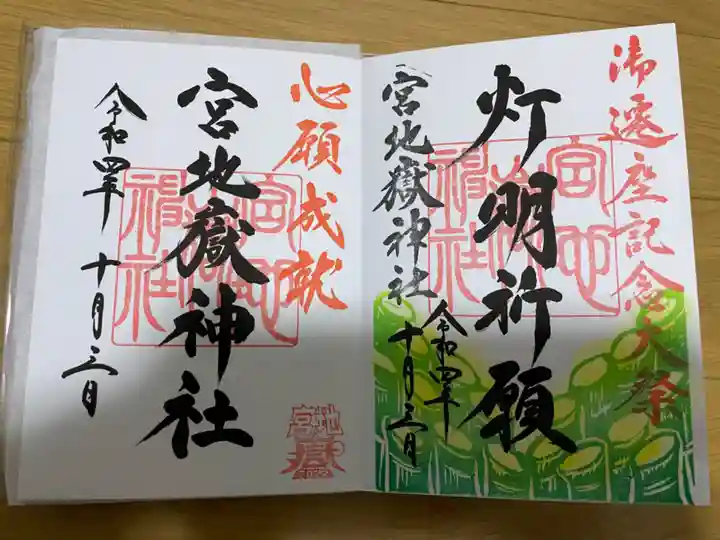 御遷座記念大祭
灯明祈願
宮地嶽神社
令和四年十月三日
心願成就
宮地嶽神社
令和四年 十月三日
宮地嶽
2022